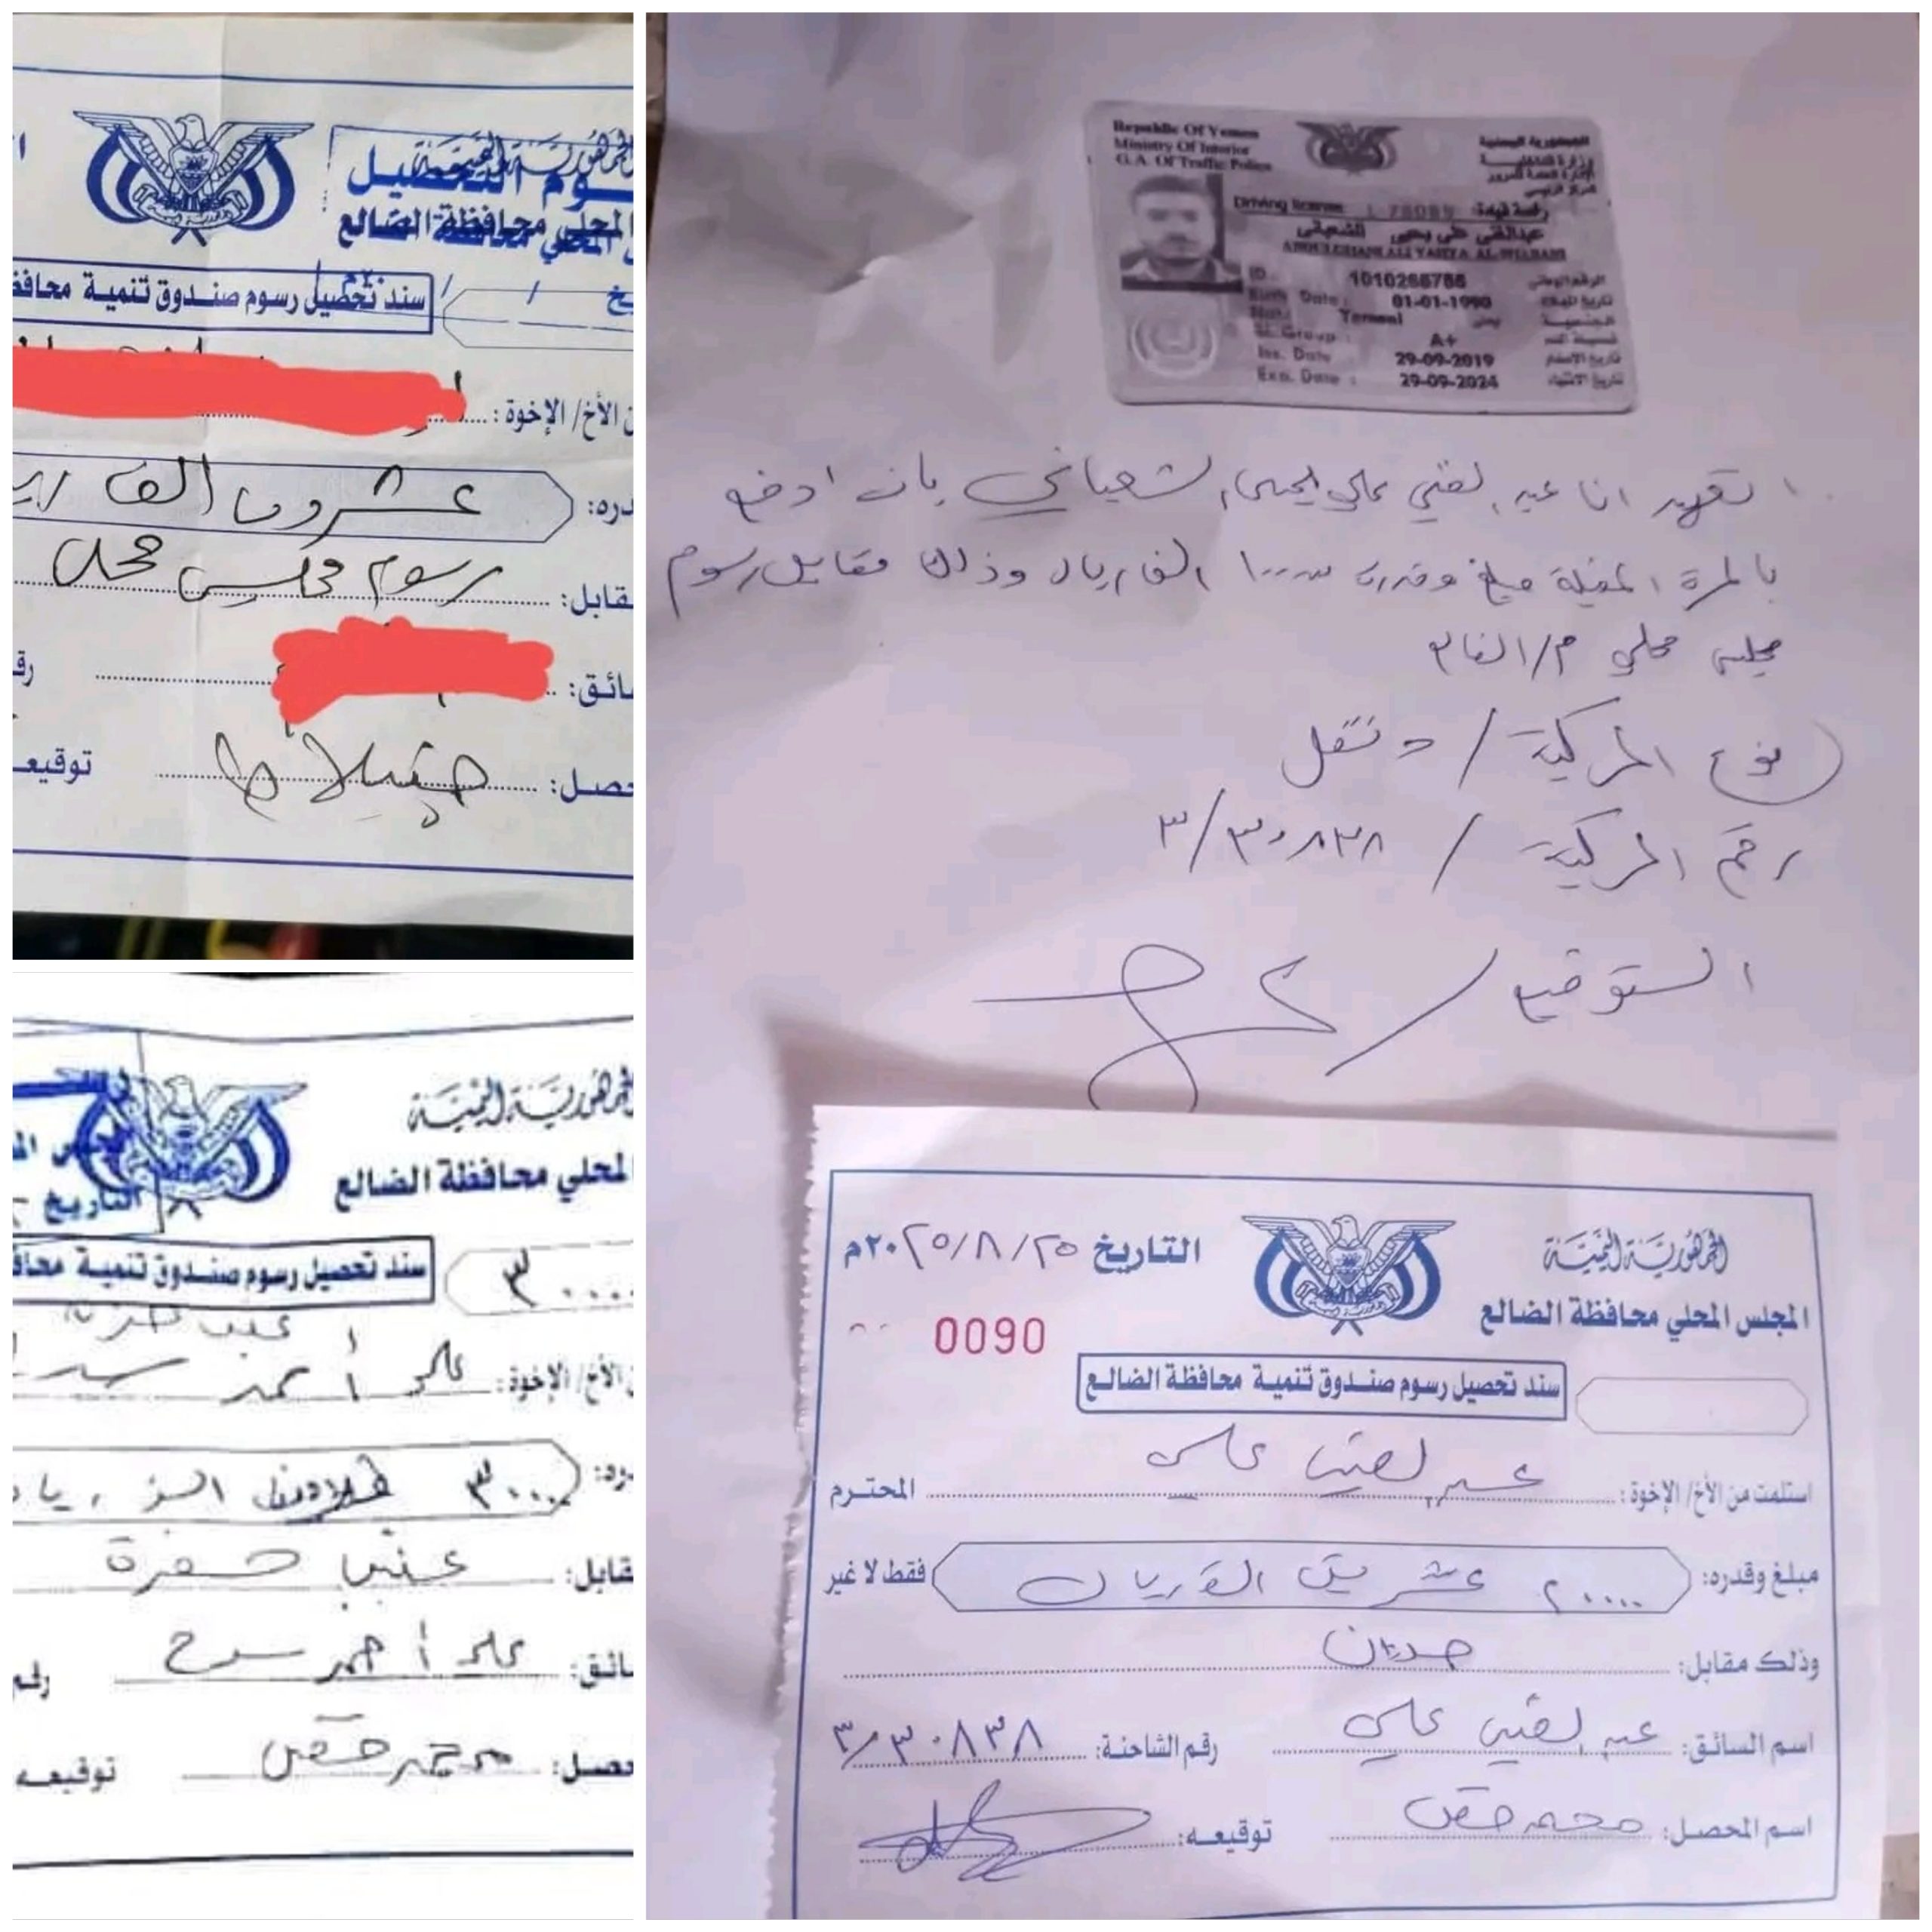 الجمهورية اليمنية
المحلي محافظة الضالع
سند تحصيل رسوم صندوق تنمية محافظ
الأخ/ الإخوة:
دره:
عشرون الف
قابل: رسوم مجلس محل
ائق:
حصل:
توقيعـ
الجمهورية اليمنية
لمحلي محافظة الضالع
التاريخ
سند تحصيل رسوم صندوق تنمية محافـ
٣٠٠٠٠
الأخ/ الإخوة: علي أحمد
٣٠٠٠٠ ثلاثون الف ريال
قابل: عنب صفرة
ائق: علي أحمد سرح
رقم
حصل: محمد
توقيعه
Republic Of Yemen
Ministry Of Interior
G.A. Of Traffic Police
الجمهورية اليمنية
وزارة الداخلية
الإدارة العامة للمرور
Driving license
رخصة قيادة
عبدالغني علي يحيى الشعباني
ID 1010266766 الرقم الوطني
Birth Date : 01-01-1990 تاريخ الميلاد
Yemeni يمني الجنسية
Bl. Group : A+ فصيلة الدم
Iss. Date 29-09-2019 تاريخ الاصدار
Exp. Date : 29-09-2024 تاريخ الانتهاء
اتعهد انا عبد الغني علي يحيى الشعباني بان ادفع
بالمرة المقبلة مبلغ وقدره ١٠٠٠٠٠ الف ريال وذلك مقابل رسوم
مجلس محلي م/الضالع
نوع المركبة / نقل
رقم المركبة / ٣/٣٠٨٣٨
التوقيع /
الجمهورية اليمنية
المجلس المحلي محافظة الضالع
التاريخ ٢٠٢٥/٨/٢٥م
0090
سند تحصيل رسوم صندوق تنمية محافظة الضالع
استلمت من الأخ/ الإخوة: عبد الغني علي المحترم
مبلغ وقدره: ٢٠٠٠٠ عشرين الف ريال فقط لا غير
وذلك مقابل:
اسم السائق: عبد الغني علي رقم الشاحنة: ٣/٣٠٨٣٨
اسم المحصل: محمد توقيعه: